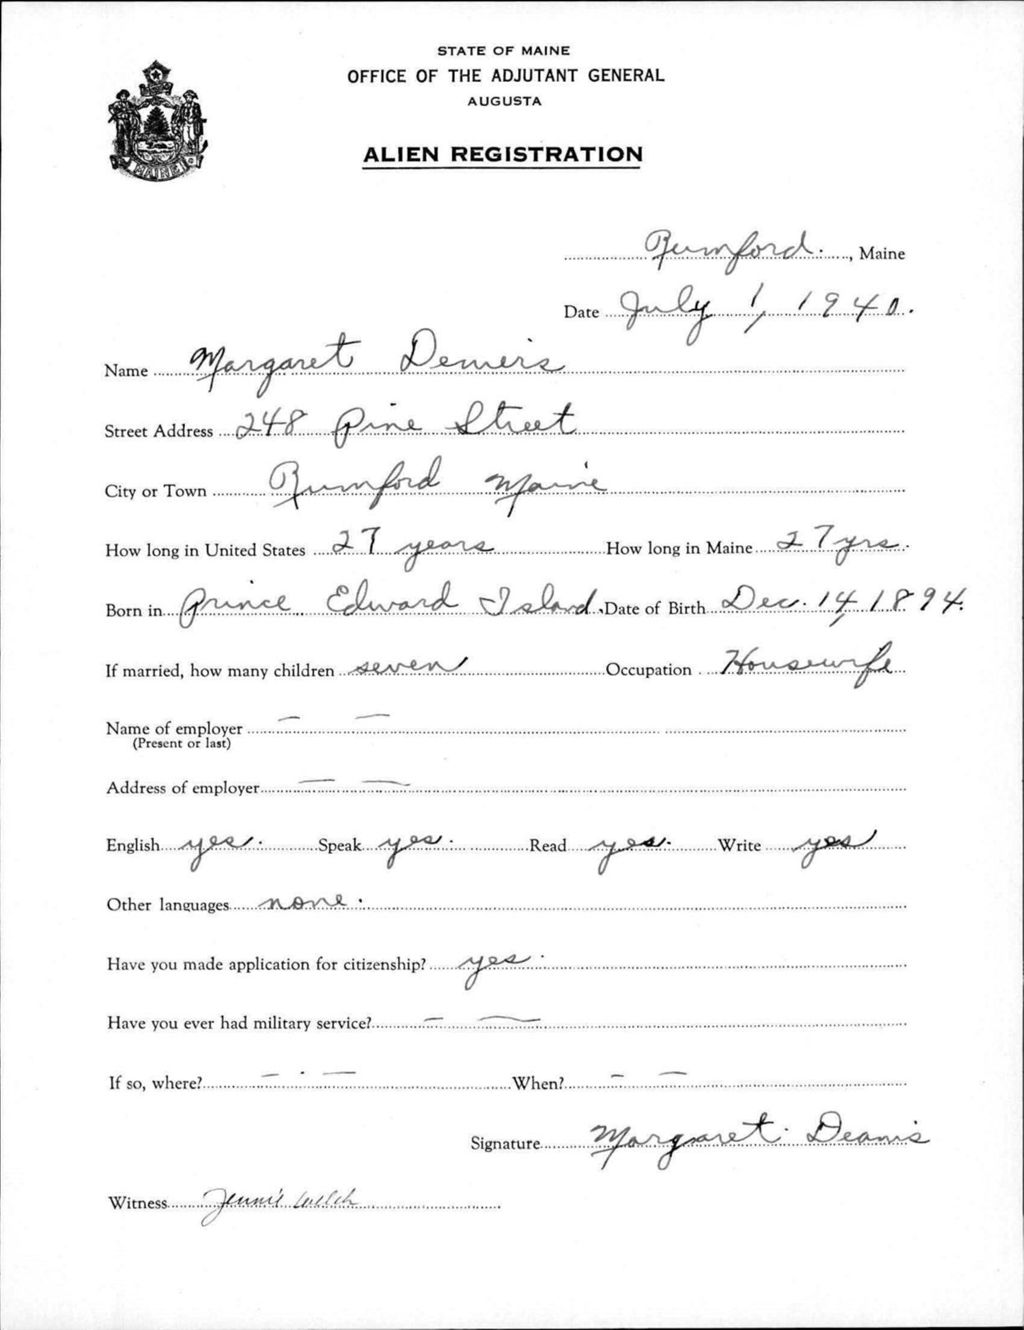 STATE OF MAINE
OFFICE OF THE ADJUTANT GENERAL
AUGUSTA
ALIEN REGISTRATION
MAINE
Rumford, Maine
Date July 1, 1940.
Name Margaret Demers
Street Address 248 Pine Street
City or Town Rumford Maine
How long in United States 27 years How long in Maine 27 yrs.
Born in Prince Edward Island Date of Birth Dec. 14, 1894.
If married, how many children seven Occupation Housewife
Name of employer — —
(Present or last)
Address of employer — —
English yes. Speak yes. Read yes. Write yes
Other languages none.
Have you made application for citizenship? yes.
Have you ever had military service? — —
If so, where? — — When? — —
Signature Margaret Deanis
Witness Jennie Welch